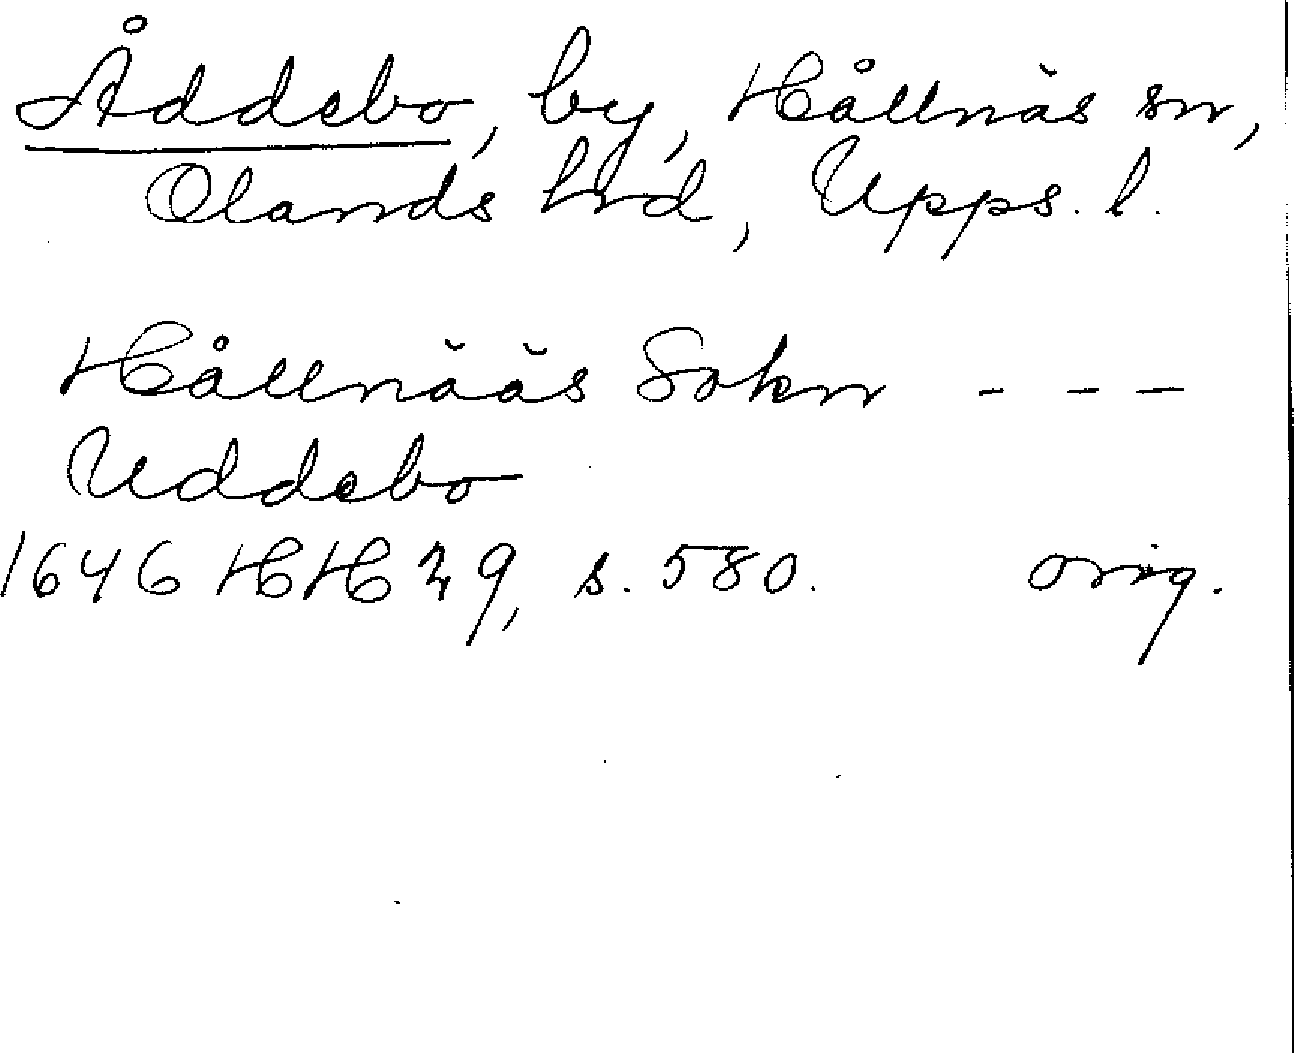 Åddebo, by, Hållnäs sn,
Olands hrd, Upps. l.
Hållnääs Sokn - - -
Uddebo
1646 HH 29, s. 580. orig.